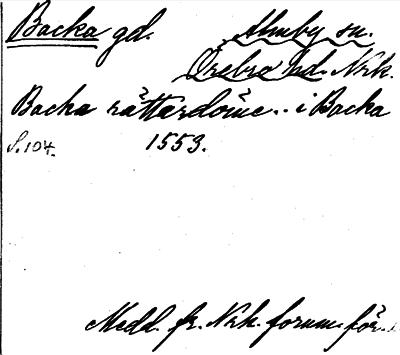 Backa gd. Almby sn.
Örebro hd. Nrk.
Backa rättardöme.. i Backa
S.104. 1553.
Medd. fr. Nrk. fornm. för.